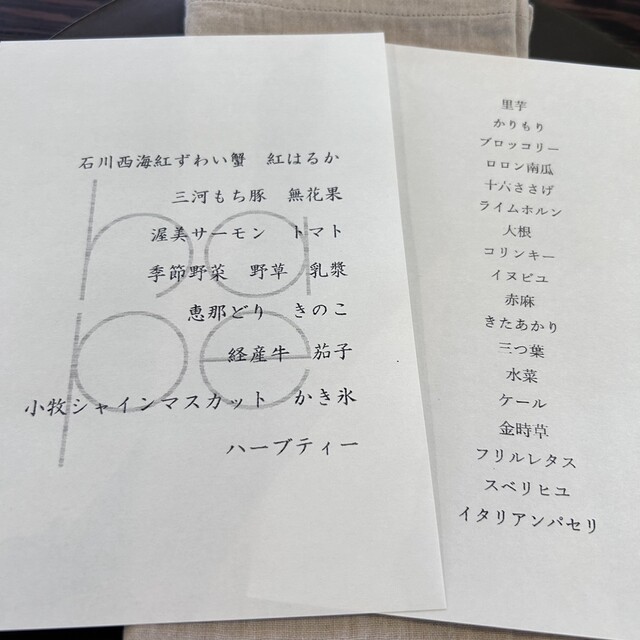 石川西海紅ずわい蟹　紅はるか
三河もち豚　無花果
渥美サーモン　トマト
季節野菜　野草　乳漿
恵那どり　きのこ
経産牛　茄子
小牧シャインマスカット　かき氷
ハーブティー
ha
pe
里芋
かりもり
ブロッコリー
ロロン南瓜
十六ささげ
ライムホルン
大根
コリンキー
イヌビユ
赤麻
きたあかり
三つ葉
水菜
ケール
金時草
フリルレタス
スベリヒユ
イタリアンパセリ